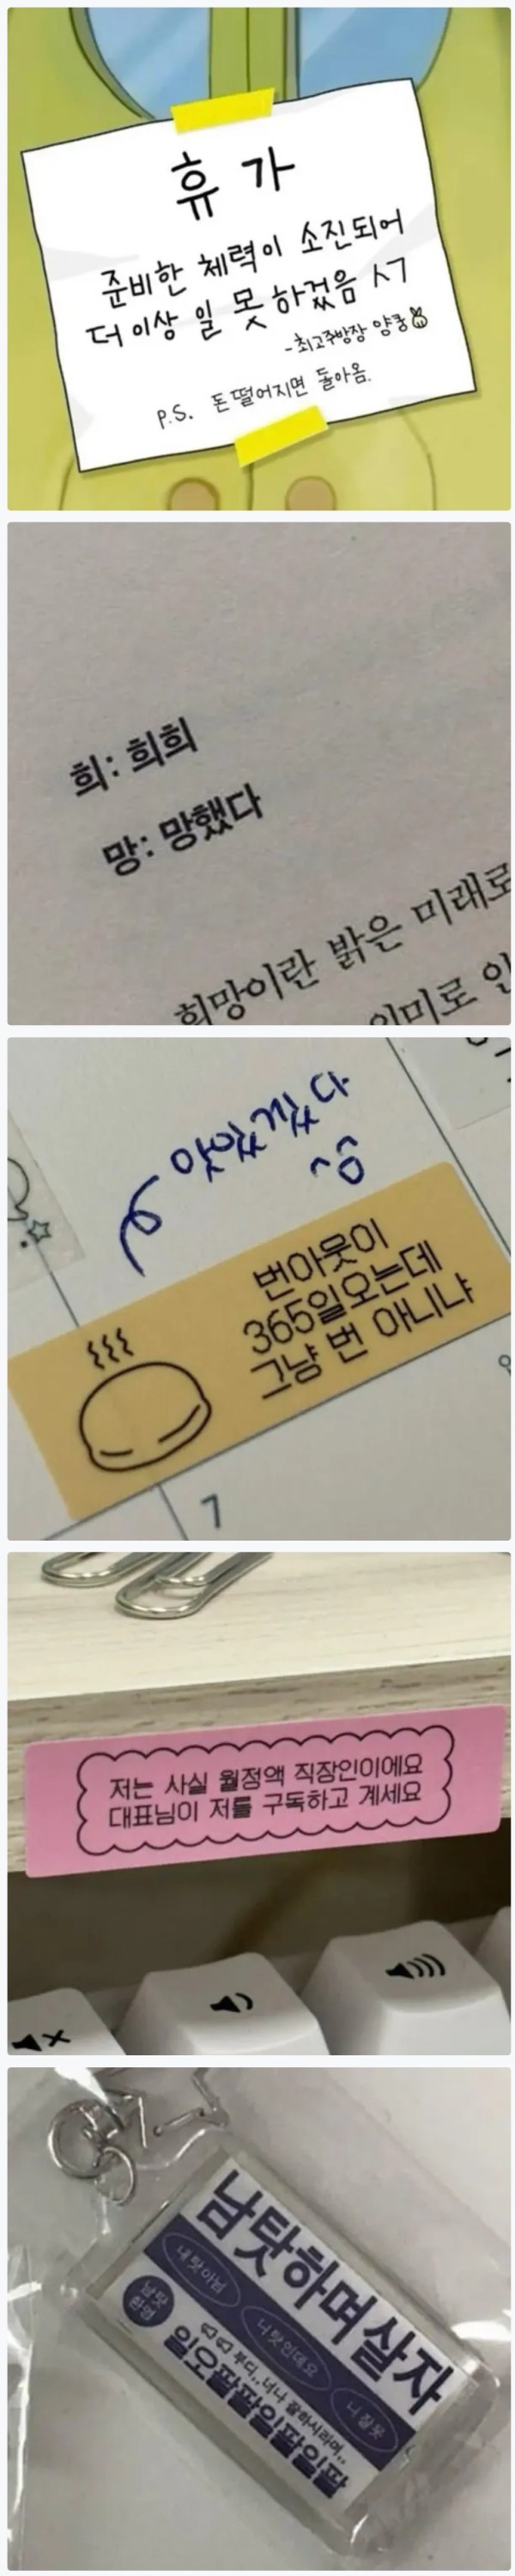 휴 가
준비한 체력이 소진되어
더 이상 일 못 하겠음 ㅅㄱ
-최고주방장 양쿵
P.S. 돈 떨어지면 돌아옴.
희: 희희
망: 망했다
희망이란 밝은 미래로
의미로 인
번아웃이
365일오는데
그냥 번 아니냐
7
저는 사실 월정액 직장인이에요
대표님이 저를 구독하고 계세요
남탓하며살자
내 탓아님
니탓인데요
니 잘못
남탓
환영
부디..너나 잘하시라며..
일오팔팔일팔일팔